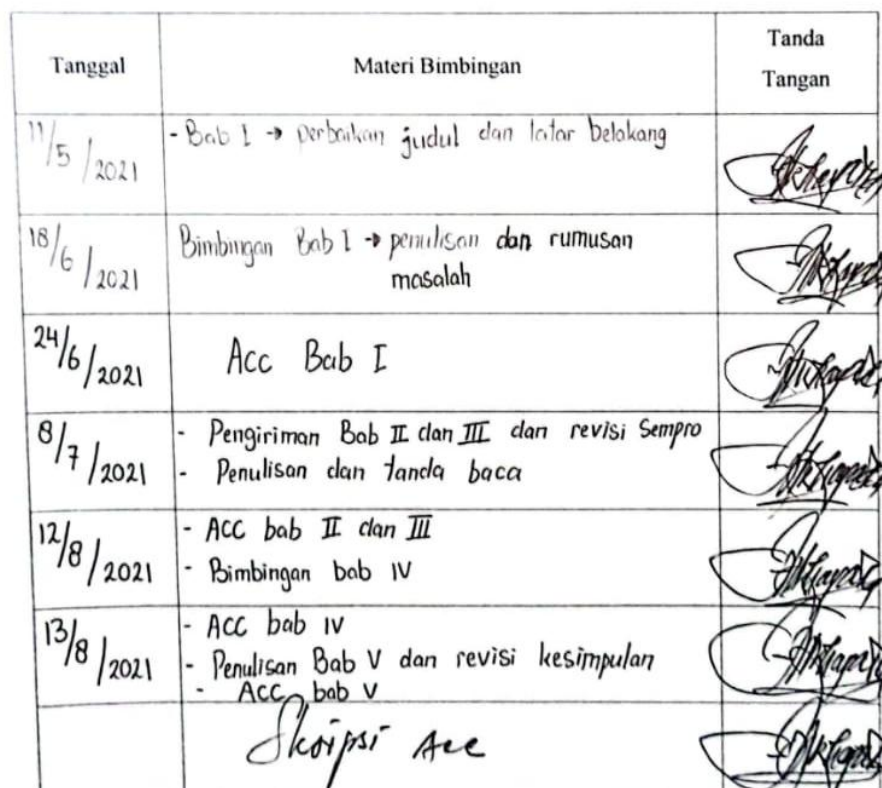 Tanggal
Materi Bimbingan
Tanda
Tangan
11/5/2021
- Bab I → perbaikan judul dan latar belakang
18/6/2021
Bimbingan Bab I → penulisan dan rumusan
masalah
24/6/2021
Acc Bab I
8/7/2021
- Pengiriman Bab II dan III dan revisi Sempro
- Penulisan dan tanda baca
12/8/2021
- ACC bab II dan III
- Bimbingan bab IV
13/8/2021
- ACC bab IV
- Penulisan Bab V dan revisi kesimpulan
- ACC bab V
Skripsi Acc